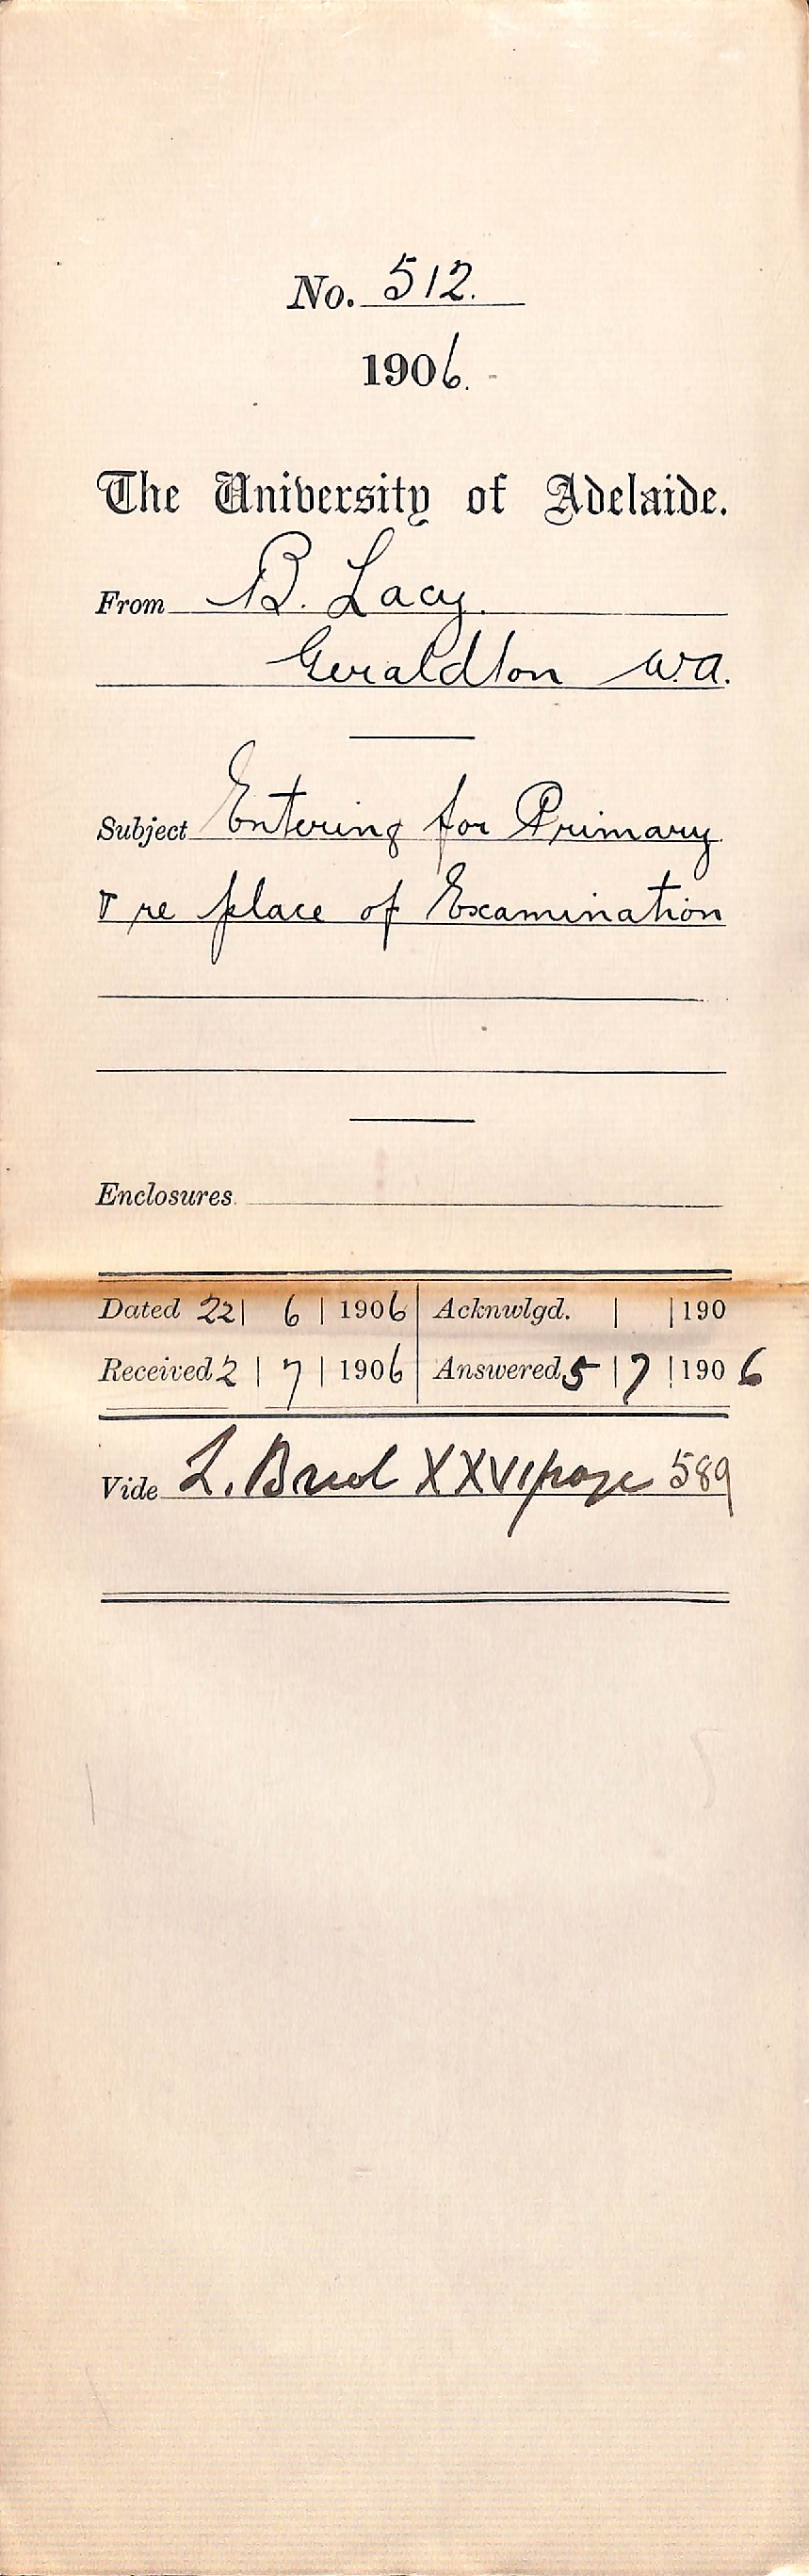 No. 512.
1906.
The University of Adelaide.
From B. Lacy.
Geraldton W.A.
Subject Entering for Primary
& re place of Examination
Enclosures
Dated 22 | 6 | 1906 Acknwlgd. | | 190
Received 2 | 7 | 1906 Answered 5 | 7 | 1906
Vide L. XXVI page 589